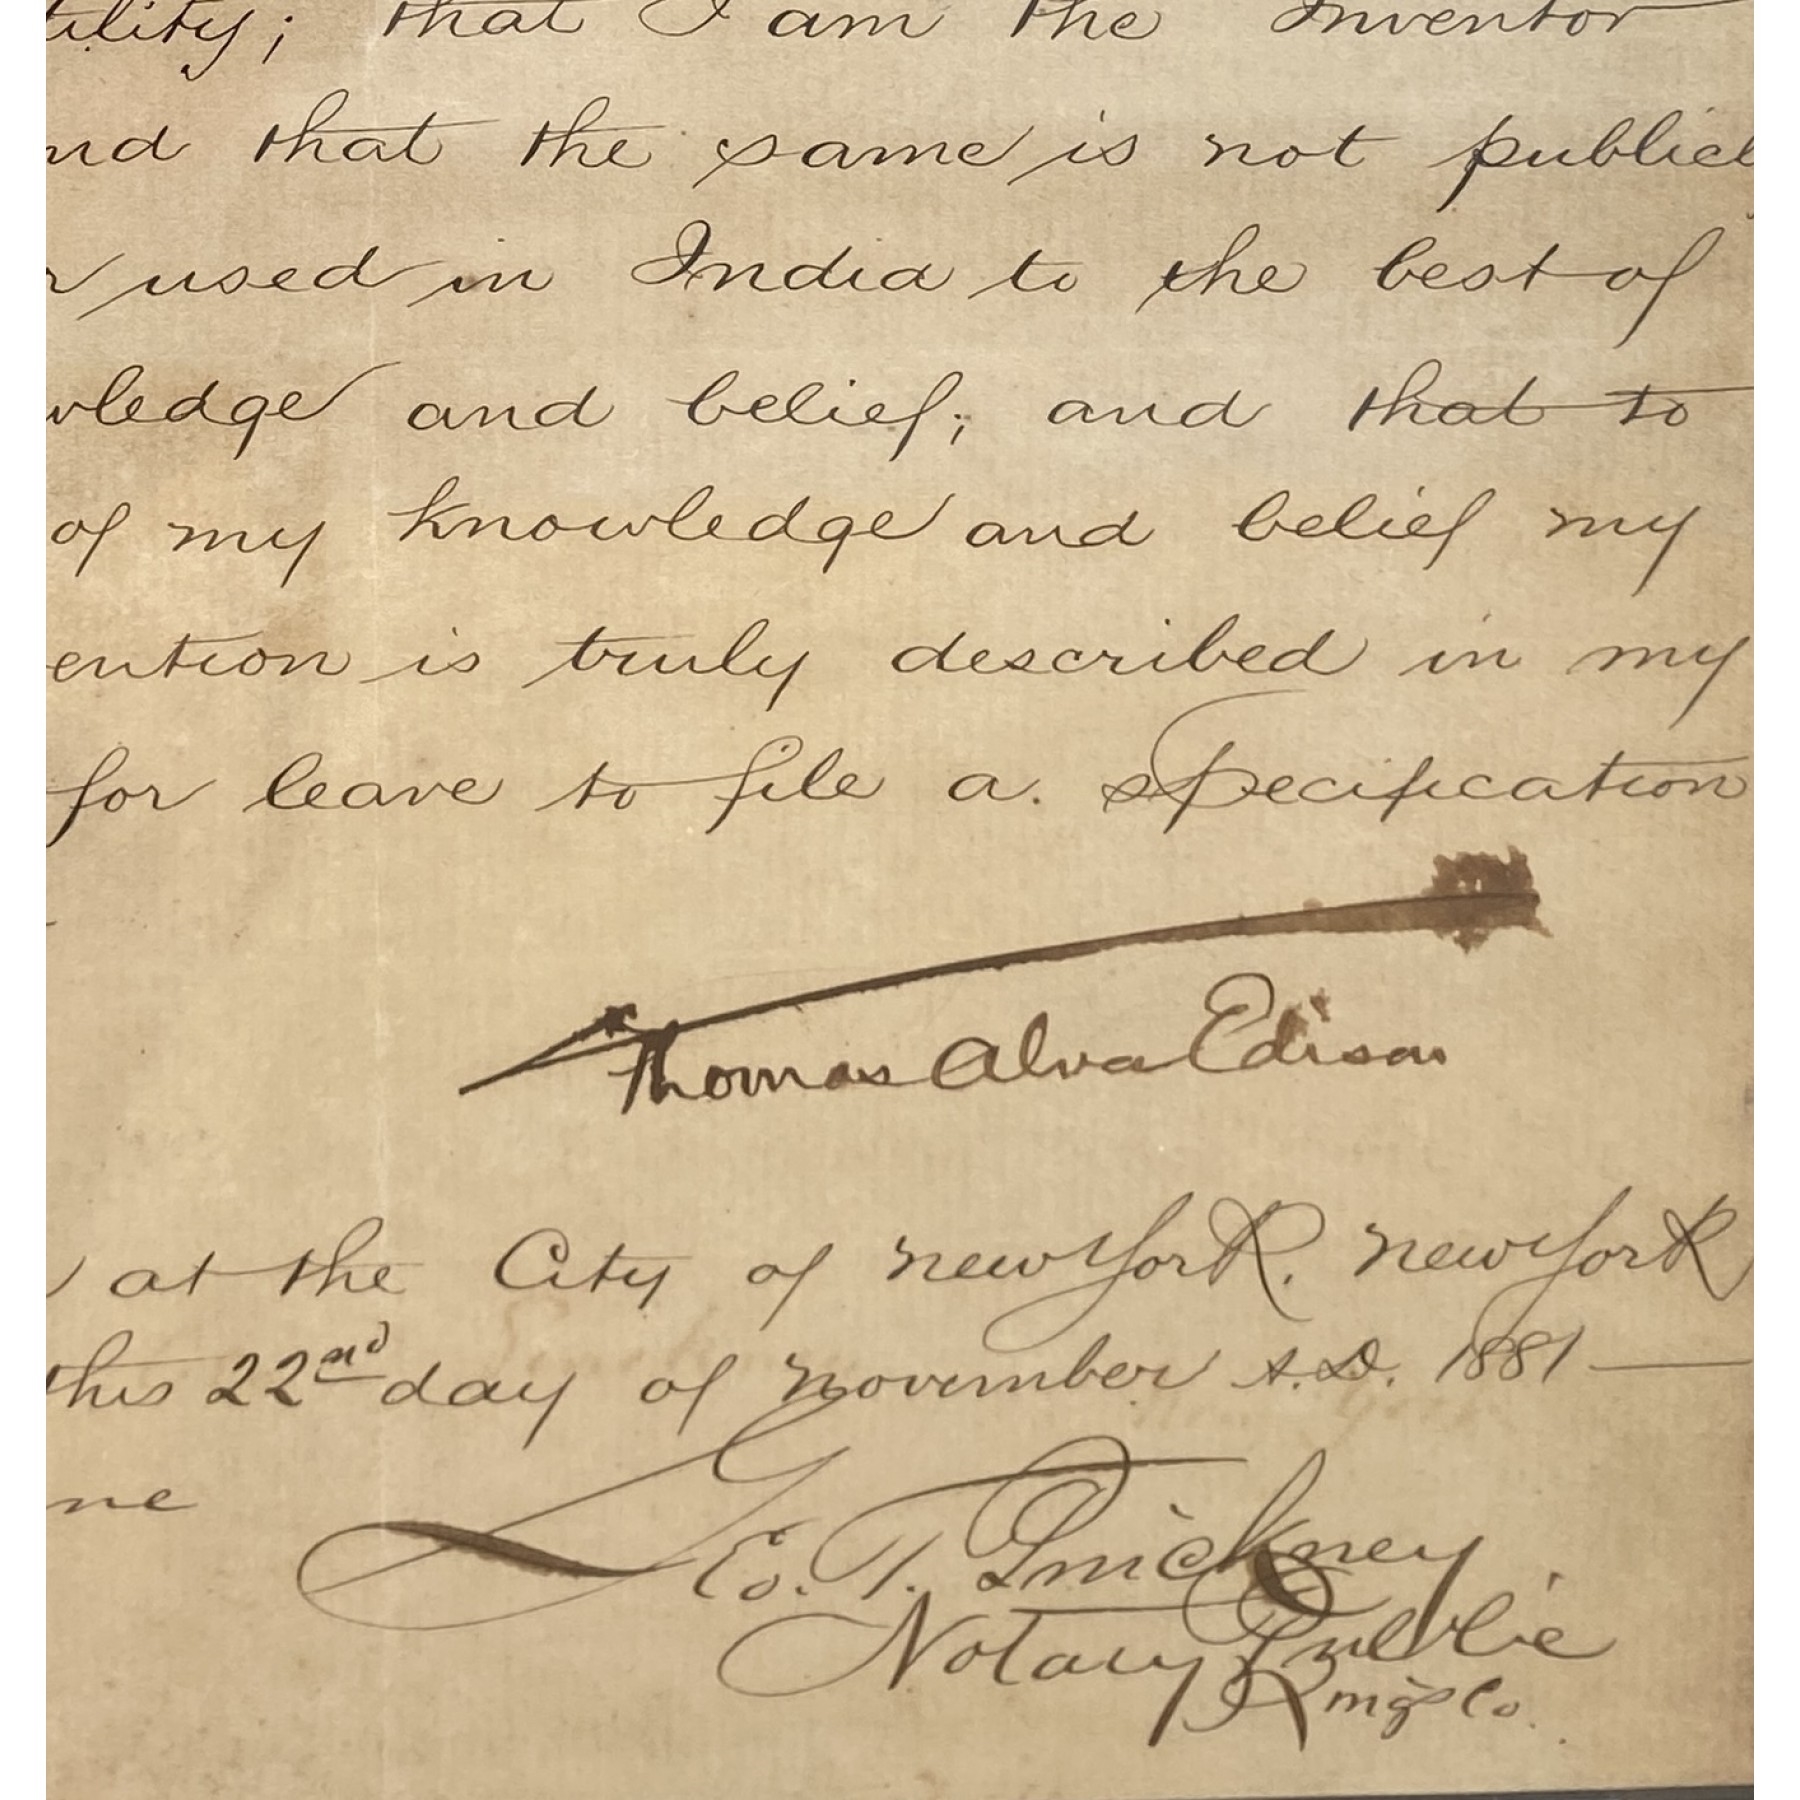 tility; that I am the Inventor
nd that the same is not public
r used in India to the best of
wledge and belief; and that to
of my knowledge and belief my
ention is truly described in my
for leave to file a. specification
Thomas Alva Edison
at the City of new York. new York
this 22nd day of november A.D. 1881
me
Geo. T. Pinckney
Notary Public
Kings Co.